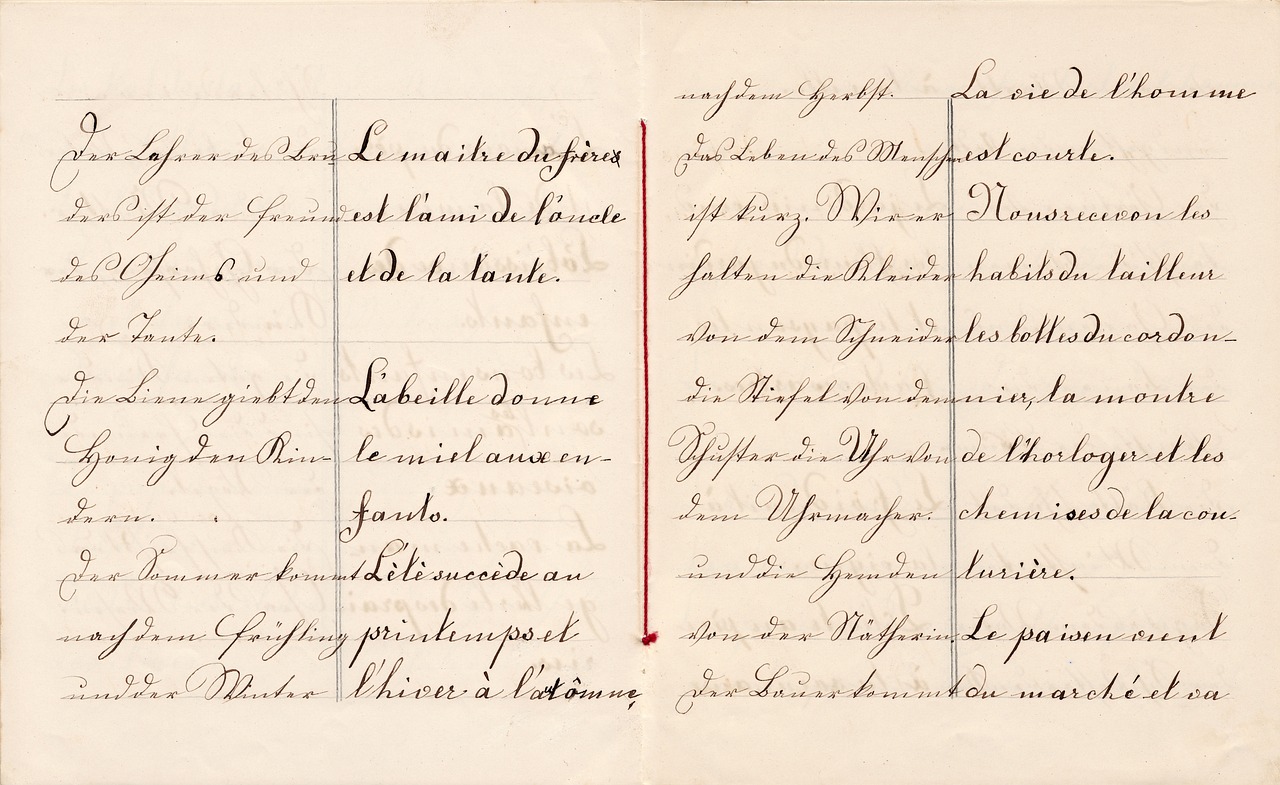 Der Lehrer des Bru
ders ist der Freund
des Oheims und
der Tante.
Die Biene giebt den
Honig den Kin-
dern.
Der Sommer kommt
nach dem Frühling
und der Winter
Le maitre du frères
est l'ami de l'oncle
et de la tante.
L'abeille donne
le miel aux en-
fants.
L'étè succède au
printemps et
l'hiver à l'autômne,
nach dem Herbst.
Das Leben des Menschen
ist kurz. Wir er
halten die Kleider
von dem Schneider
die Stiefel von dem
Schuster die Uhr von
dem Uhrmacher.
und die Hemden
von der Nätherin.
Der Bauer kommt
La vie de l'homme
est courte.
Nous recevon les
habits du tailleur
les bottes du cordon-
nier, la montre
de l'horloger et les
chemises de la cou-
turière.
Le paisen vient
du marché et va